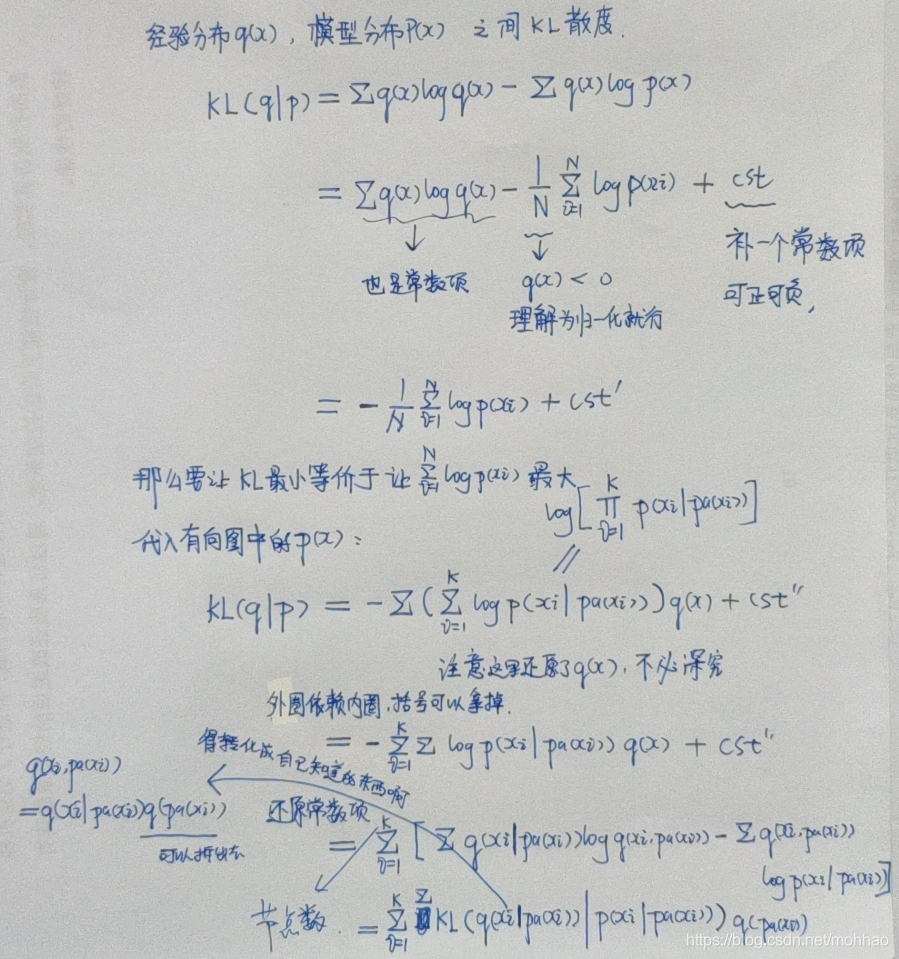 经验分布q(x),模型分布P(x) 之间KL散度.
KL(q|p) = Σq(x)logq(x) - Σq(x)logp(x)
= Σq(x)logq(x) - 1/N Σ_{i=1}^{N} logp(xi) + cst
也是常数项
q(x) < 0
理解为归一化就行
补一个常数项
可正可负,
= - 1/N Σ_{i=1}^{N} logp(xi) + cst'
那么要让KL最小等价于让 Σ_{i=1}^{N} logp(xi) 最大
log[∏_{i=1}^{K} p(xi|pa(xi))]
代入有向图中的p(x):
KL(q|p) = -Σ(Σ_{i=1}^{K} logp(xi|pa(xi)))q(x) + cst''
注意这里还原了q(x),不必深究
外圈依赖内圈,括号可以拿掉.
= -Σ_{i=1}^{K} Σ logp(xi|pa(xi))q(x) + cst''
得转化成自己知道的东西啊
q(xi,pa(xi))
=q(xi|pa(xi))q(pa(xi))
还原常数项
= Σ_{i=1}^{K} [Σq(xi|pa(xi))logq(xi,pa(xi)) - Σq(xi,pa(xi))
logp(xi|pa(xi))]
节点数. = Σ_{i=1}^{K} Σ KL(q(xi|pa(xi))|p(xi|pa(xi)))q(pa(xi))
https://blog.csdn.net/mohhao